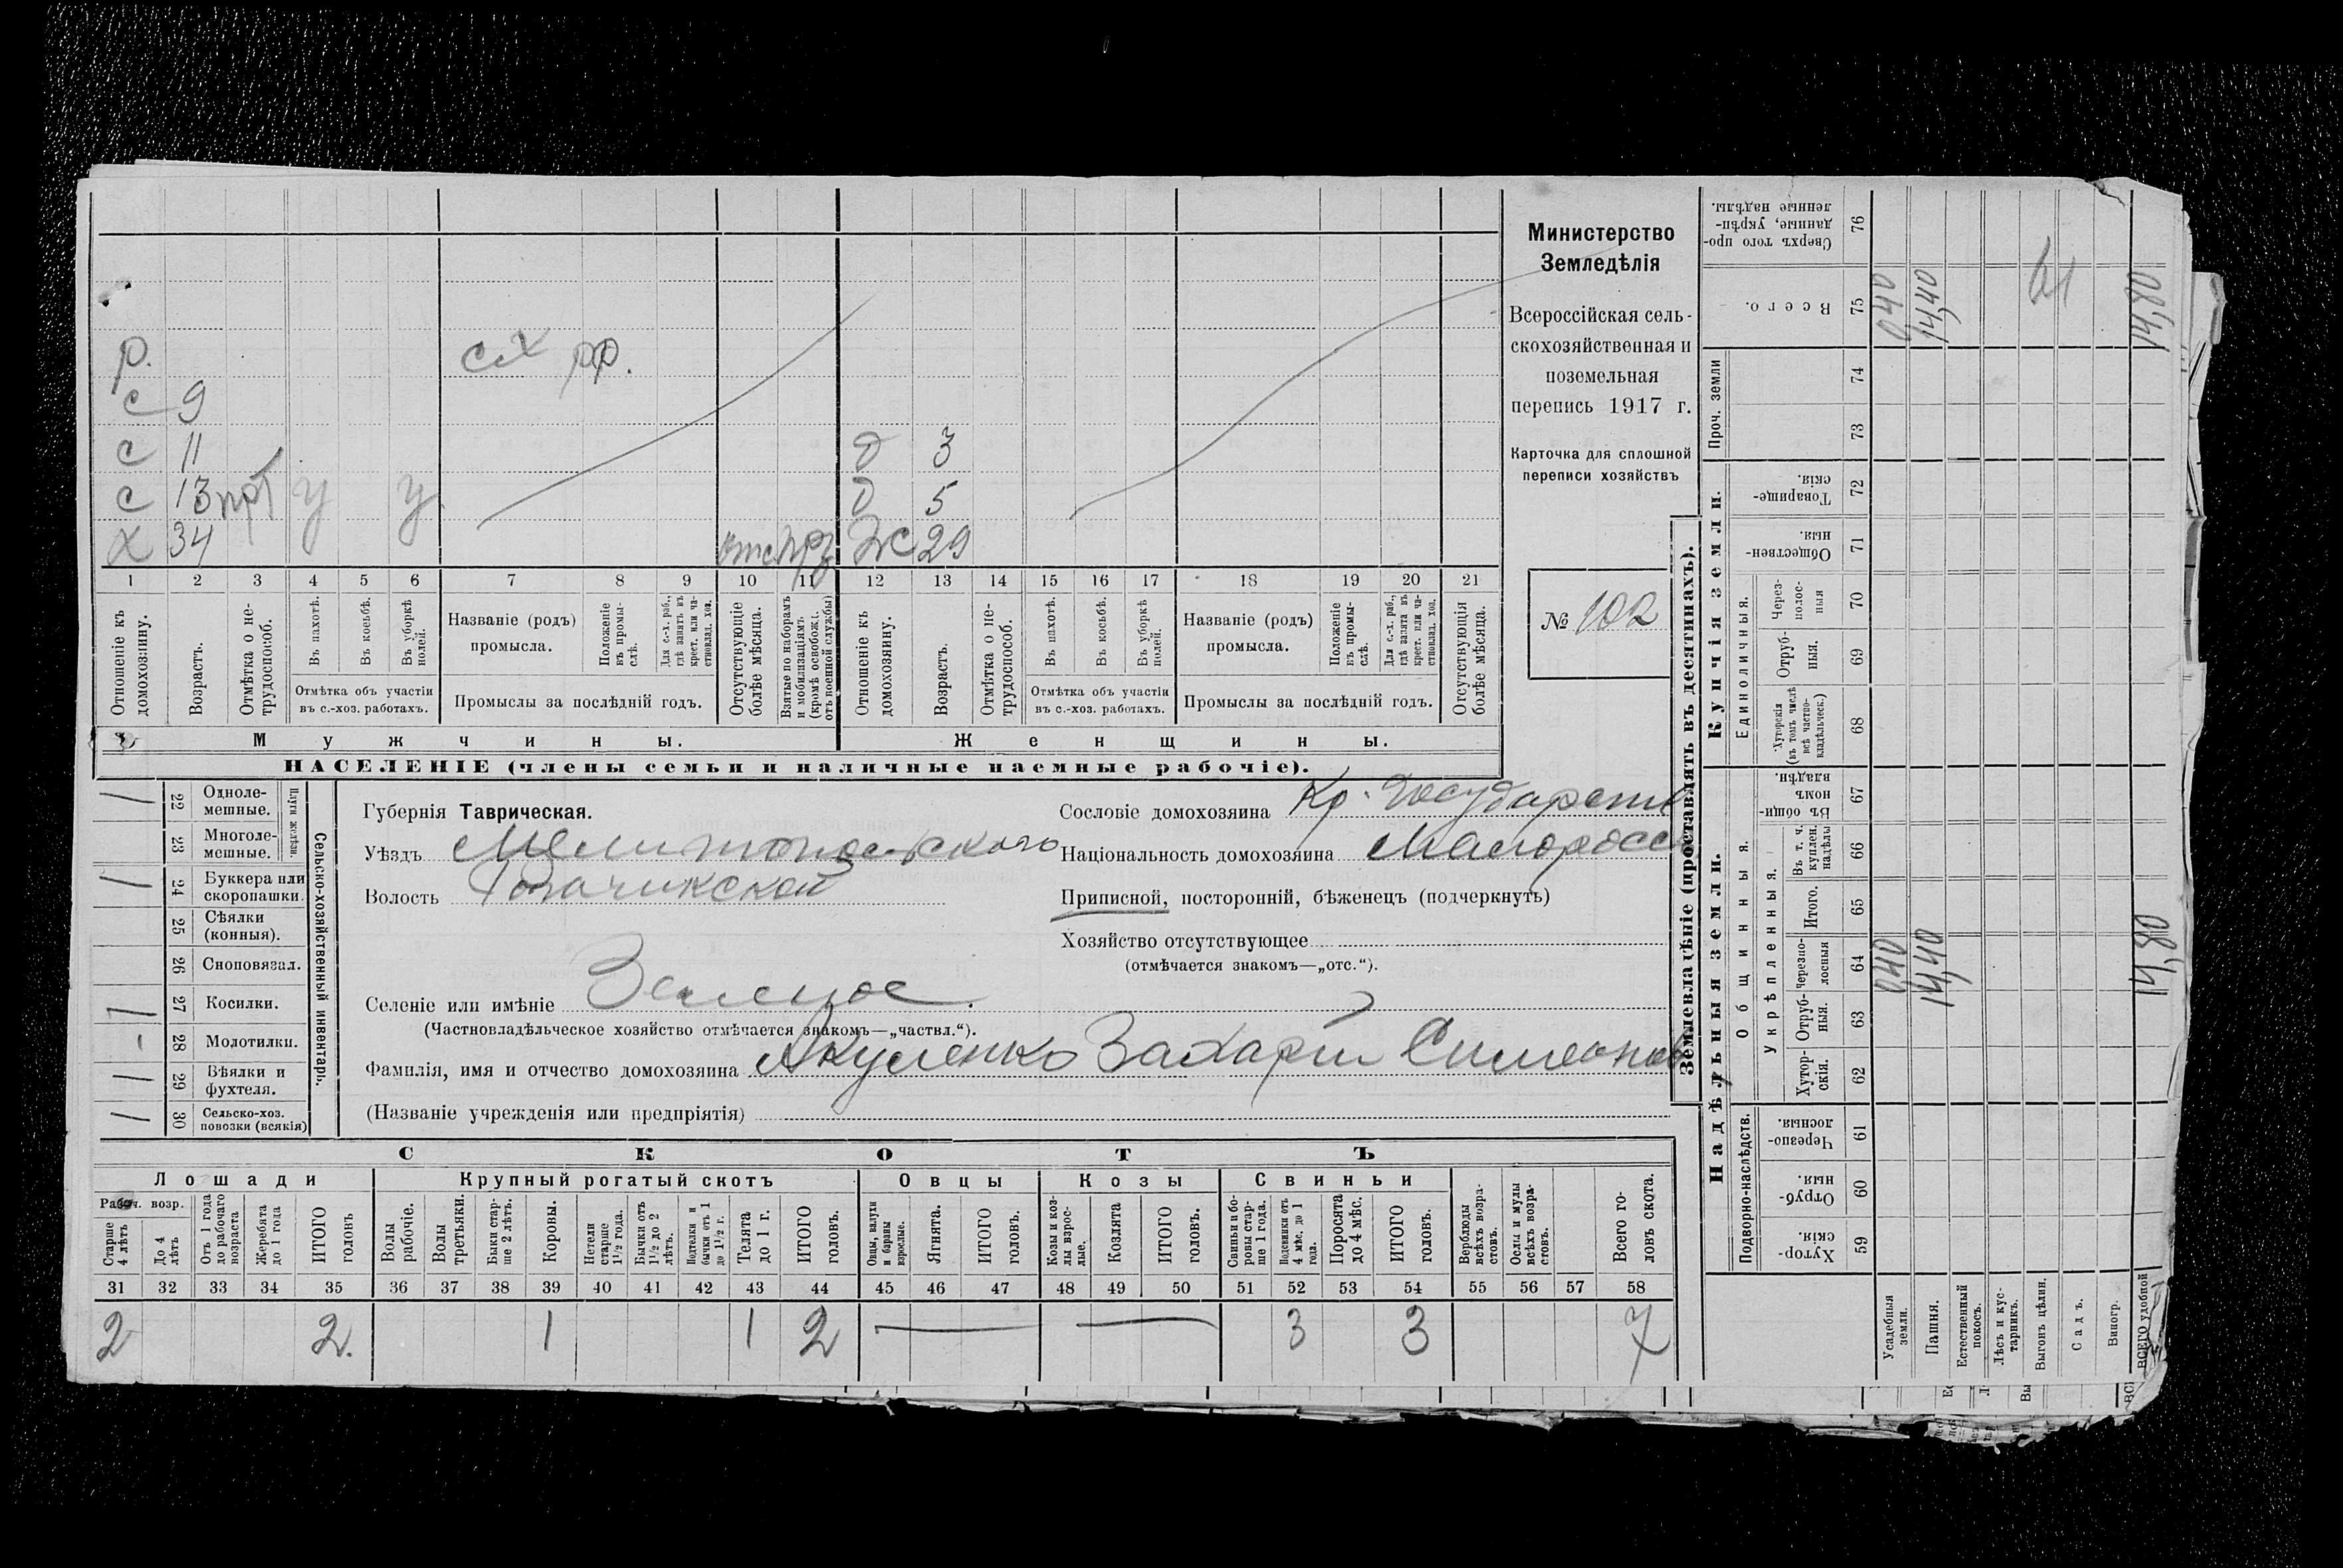 Министерство
Земледѣлія
Всероссійская сель-
скохозяйственная и
поземельная
перепись 1917 г.
Карточка для сплошной
переписи хозяйствъ
№ 102
р. сх рр.
с 9
с 11 д 3
с 13 прт у у д 5
х 34 отс прз ж 29
1 2 3 4 5 6 7 8 9 10 11 12 13 14 15 16 17 18 19 20 21
Отношеніе къ домохозяину.
Возрастъ.
Отмѣтка о не-трудоспособ.
Въ пахотѣ.
Въ косьбѣ.
Въ уборкѣ полей.
Отмѣтка объ участіи
въ с.-хоз. работахъ.
Названіе (родъ)
промысла.
Положеніе къ промы-слѣ.
Для с.-х. раб., гдѣ занятъ въ крест. или ча-стновлад. хоз.
Промыслы за послѣдній годъ.
Отсутствующіе болѣе мѣсяца.
Взятые по наборамъ и мобилизаціямъ (кромѣ освобожд. отъ военной службы)
Отношеніе къ домохозяину.
Возрастъ.
Отмѣтка о не-трудоспособ.
Въ пахотѣ.
Въ косьбѣ.
Въ уборкѣ полей.
Отмѣтка объ участіи
въ с.-хоз. работахъ.
Названіе (родъ)
промысла.
Положеніе къ промы-слѣ.
Для с.-х. раб., гдѣ занята въ крест. или ча-стновлад. хоз.
Промыслы за послѣдній годъ.
Отсутствующія болѣе мѣсяца.
Мужчины. Женщины.
НАСЕЛЕНІЕ (члены семьи и наличные наемные рабочіе).
Сельско-хозяйственный инвентарь.
Плуги желѣзн.
22 Одноле-мешные. 1
23 Многоле-мешные.
24 Буккера или скоропашки. 1
25 Сѣялки (конныя).
26 Сноповязал.
27 Косилки. 1
28 Молотилки. -
29 Вѣялки и фухтеля. 1
30 Сельско-хоз. повозки (всякія) 1
Губернія Таврическая.
Уѣздъ Мелитопольскаго
Волость Рогачикской
Селеніе или имѣніе Зеленое.
(Частновладѣльческое хозяйство отмѣчается знакомъ—„частвл.“).
Фамилія, имя и отчество домохозяина Акуленко Захарій Симеонов
(Названіе учрежденія или предпріятія)
Сословіе домохозяина Кр. Государств
Національность домохозяина Малоросс
Приписной, посторонній, бѣженецъ (подчеркнуть)
Хозяйство отсутствующее
(отмѣчается знакомъ—„отс.“).
СКОТЪ
Лошади Крупный рогатый скотъ Овцы Козы Свиньи
Рабоч. возр.
Старше 4 лѣтъ
До 4 лѣтъ
Отъ 1 года до рабочаго возраста
Жеребята до 1 года
ИТОГО головъ
Волы рабочіе.
Волы третьяки.
Быки стар-ше 2 лѣтъ.
Коровы.
Нетели старше 1½ года.
Бычки отъ 1½ до 2 лѣтъ.
Подтелки и бычки отъ 1 до 1½ г.
Телята до 1 г.
ИТОГО головъ.
Овцы, валухи и бараны взрослые.
Ягнята.
ИТОГО головъ.
Козы и коз-лы взрос-лые.
Козлята
ИТОГО головъ.
Свиньи и бо-ровы стар-ше 1 года.
Подсвинки отъ 4 мѣс. до 1 года.
Поросята до 4 мѣс.
ИТОГО головъ.
Верблюды всѣхъ возра-стовъ.
Ослы и мулы всѣхъ возра-стовъ.
Всего го-ловъ скота.
31 32 33 34 35 36 37 38 39 40 41 42 43 44 45 46 47 48 49 50 51 52 53 54 55 56 57 58
2 2. 1 1 2 3 3 7
Землевладѣніе (проставлять въ десятинахъ).
Надѣльныя земли. Купчія земли. Проч. земли
Подворно-наслѣдств.
Общинныя.
Укрѣпленныя.
Единоличныя.
Хутор-скія. 59
Отруб-ныя. 60
Черезпо-лосныя. 61
Хутор-скія. 62
Отруб-ныя. 63
Черезпо-лосныя 64
Итого. 65
Въ т. ч. куплен. надѣлы 66
Въ общин-номъ владѣн. 67
Хуторскія (въ томъ числѣ всѣ частно-владѣльческ.) 68
Отруб-ныя. 69
Через-полос-ныя 70
Обществен-ныя. 71
Товарище-скія. 72
73
74
Всего. 75
Сверхъ того про-данные, укрѣп-ленные надѣлы. 76
Усадебныя земли. 040 040
Пашня. 14,40 14,40
Естественный покосъ.
Лѣсъ и кус-тарникъ.
Выгонъ цѣлин.
Садъ.
Виногр.
ВСЕГО удобной 14,80 14,80